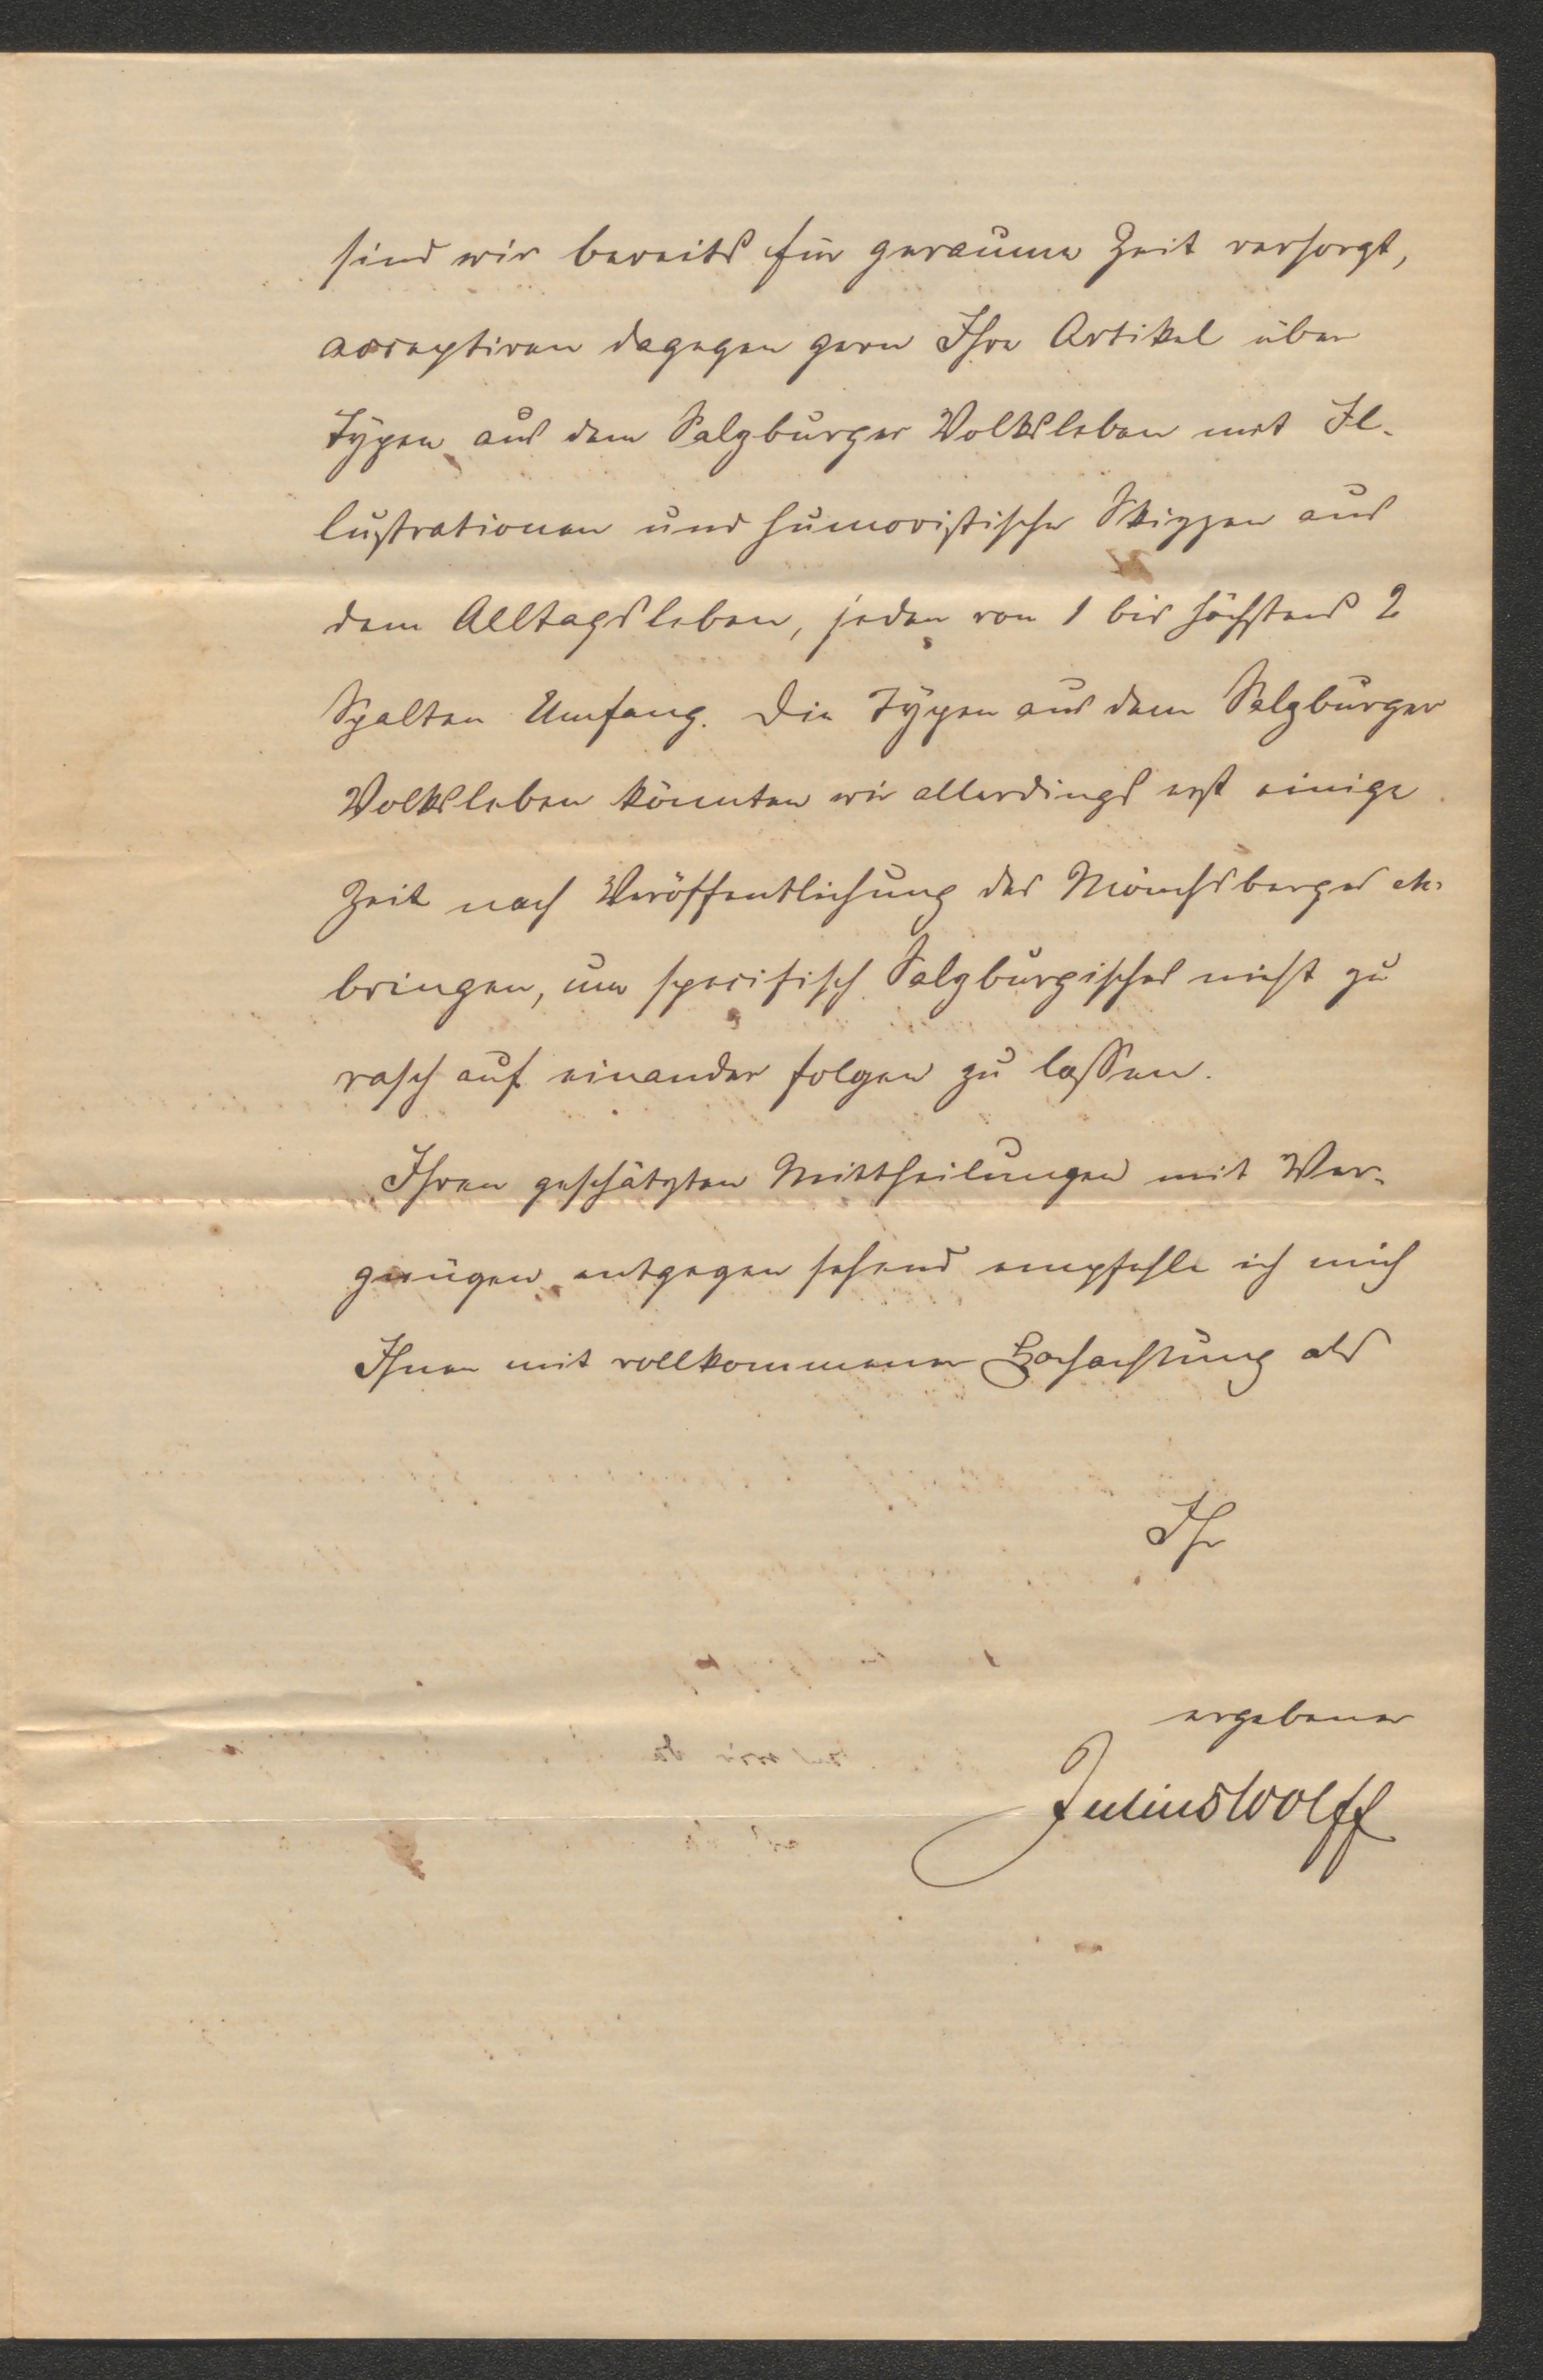 sind wir bereits für geraume Zeit versorgt,
acceptiren dagegen gern Ihre Artikel über
Typen aus dem Salzburger Volksleben mit Il-
lustrationen und humoristische Skizzen aus
dem Alltagsleben, jeden von 1 bis höchstens 2
Spalten Umfang. Die Typen aus dem Salzburger
Volksleben könnten wir allerdings erst einige
Zeit nach Veröffentlichung des Mönchsberges etc.
bringen, um specifisch Salzburgisches nicht zu
rasch auf einander folgen zu lassen.
Ihren geschätzten Mittheilungen mit Ver-
gnügen entgegen sehend empfehle ich mich
Ihnen mit vollkommener Hochachtung als
Ihr
ergebener
Julius Wolff